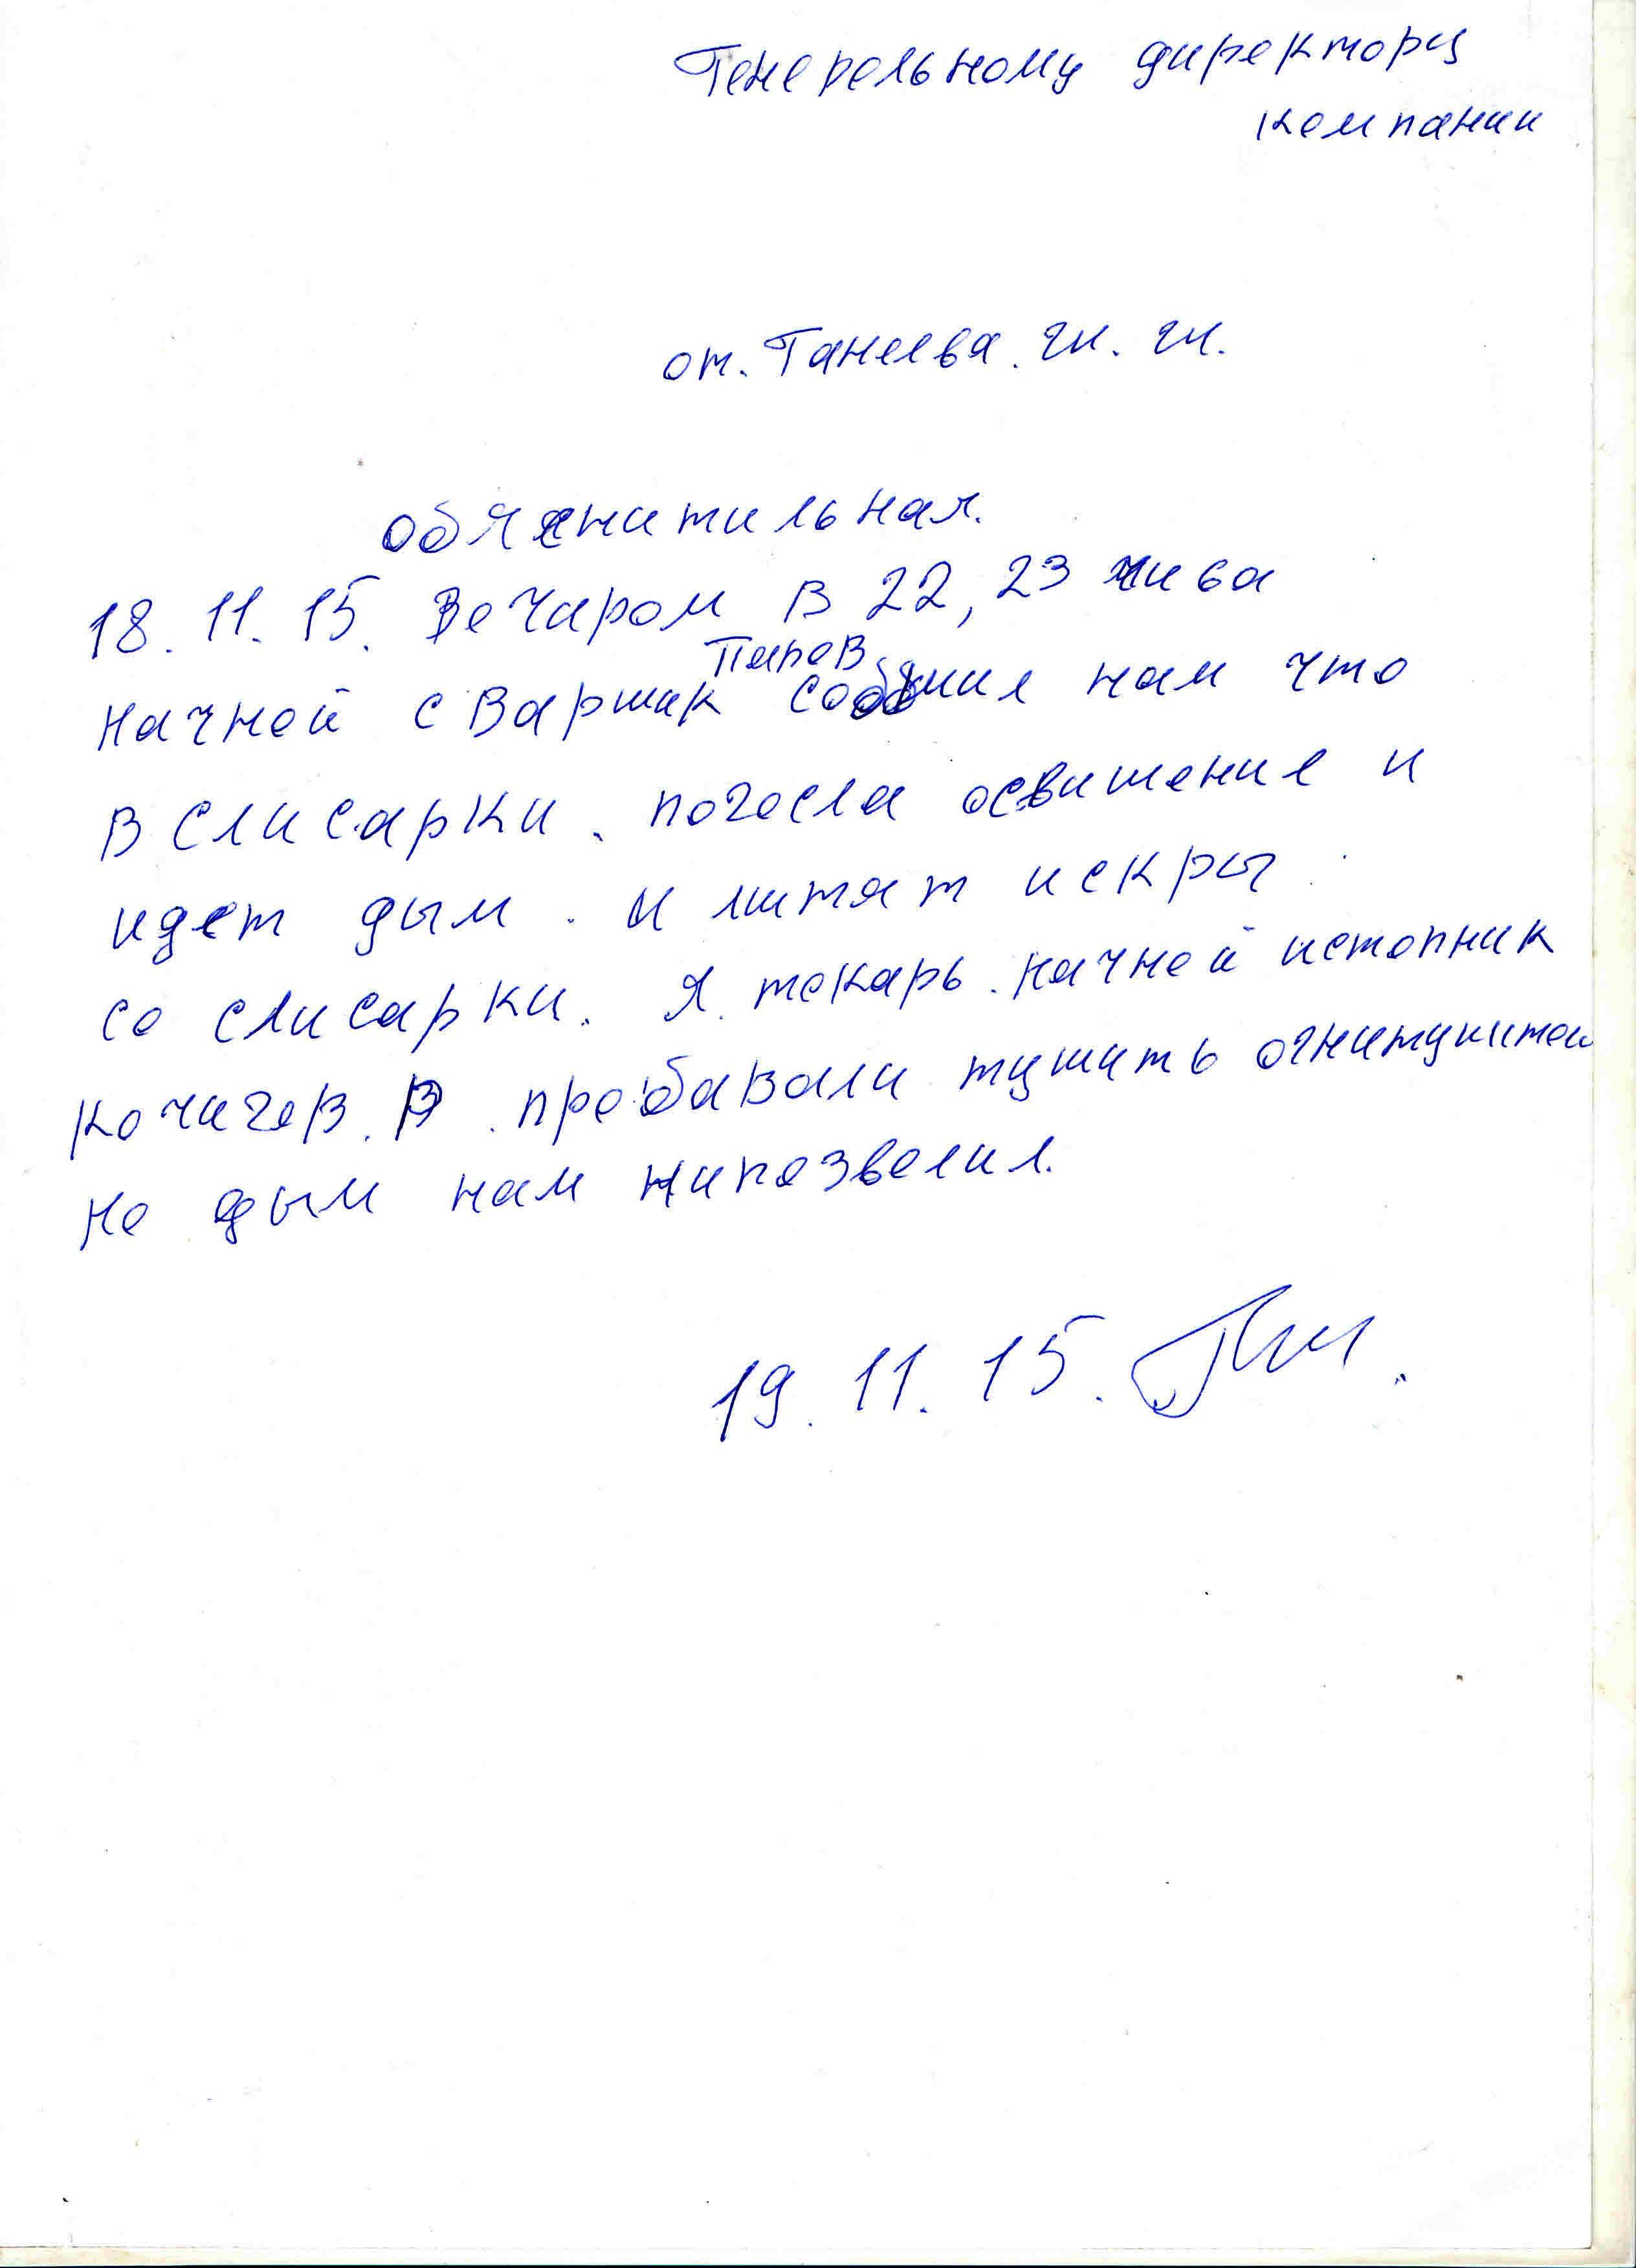 Генерельному директору
компании
от. Танеева. ги. ги.
обяснитильная.
18. 11. 15. Вечаром в 22, 23
Начной сварщик Пиров сообщил нам что
в слисарки. погосла освищение и
идет дым. и литят искры
со слисарки. Я. токарь. начной истопник
Кочигов. В. пробавали тушить огнитушител
но дым нам нипозволил.
19. 11. 15.